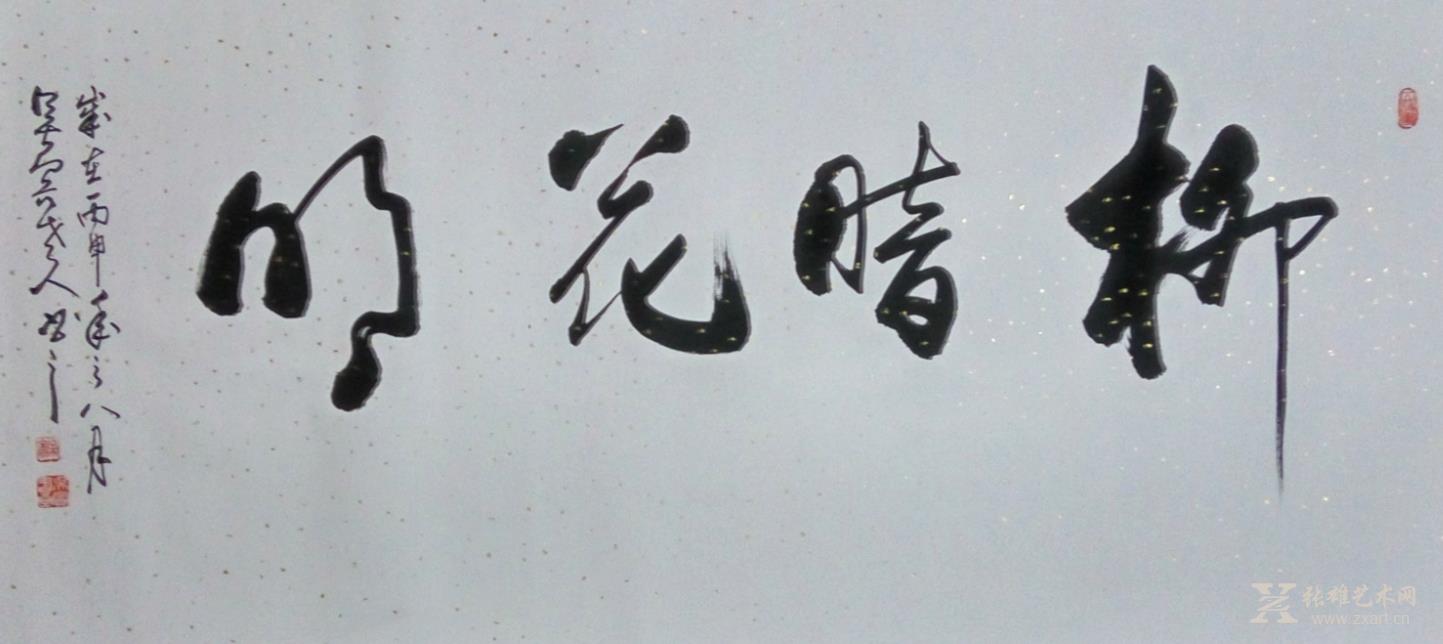 柳暗花明
歲在丙申年之八月
人书之
张雄艺术网
www.zxart.cn